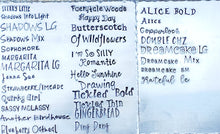 Shadows Into Light
SHADOWS LG
Shadows Mix
SOPHOMORE
MARGARITA
MARGARITA LG
Jenna Sue
Strawberry/limeade
Quirky Girl
SASSY MOLASSY
Another Birdhouse
Blueberry Oatmeal
Fairytale Woods
Happy Day
Butterscotch
Of Wildflowers
I'm So Silly
Romantic
Hello Sunshine
Drawing
Tickled Bold
Tickled Thin
GINGERBREAD
Ding Dang
ALICE BOLD
ALICE
Copperlock
DOUBLE CHZ
DREAMCAKE LG
Dreamcake Mix
DREAMCAKE SM
Grateful